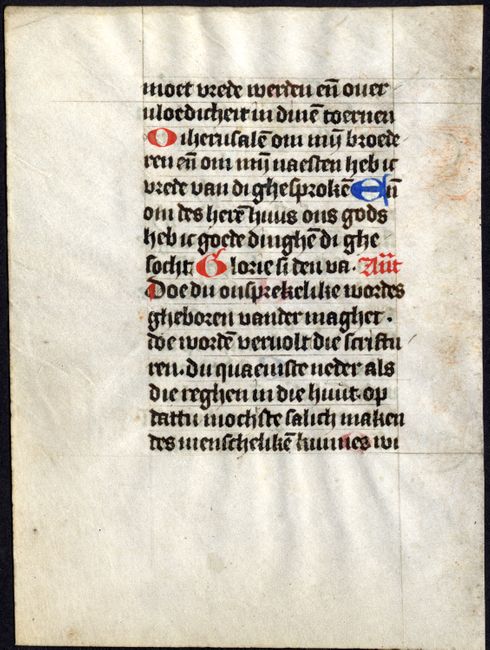 moet vrede werden en̄ ouer
vloedicheit in dinē toernen
O iherusalē om mijn broede
ren en̄ om mijn naesten heb ic
vrede van di ghesprokē En̄
om des herē huus ons gods
heb ic goede dinghē di ghe
socht Glorie si den va. Ant̄
Doe du onsprekelike wordes
gheboren vander maghet.
doe wordē vervolt die scriftu
ren. du quaemste neder als
die reghen in dat huut. op
dattu mochste salich maken
des menschelikē kunnes wi